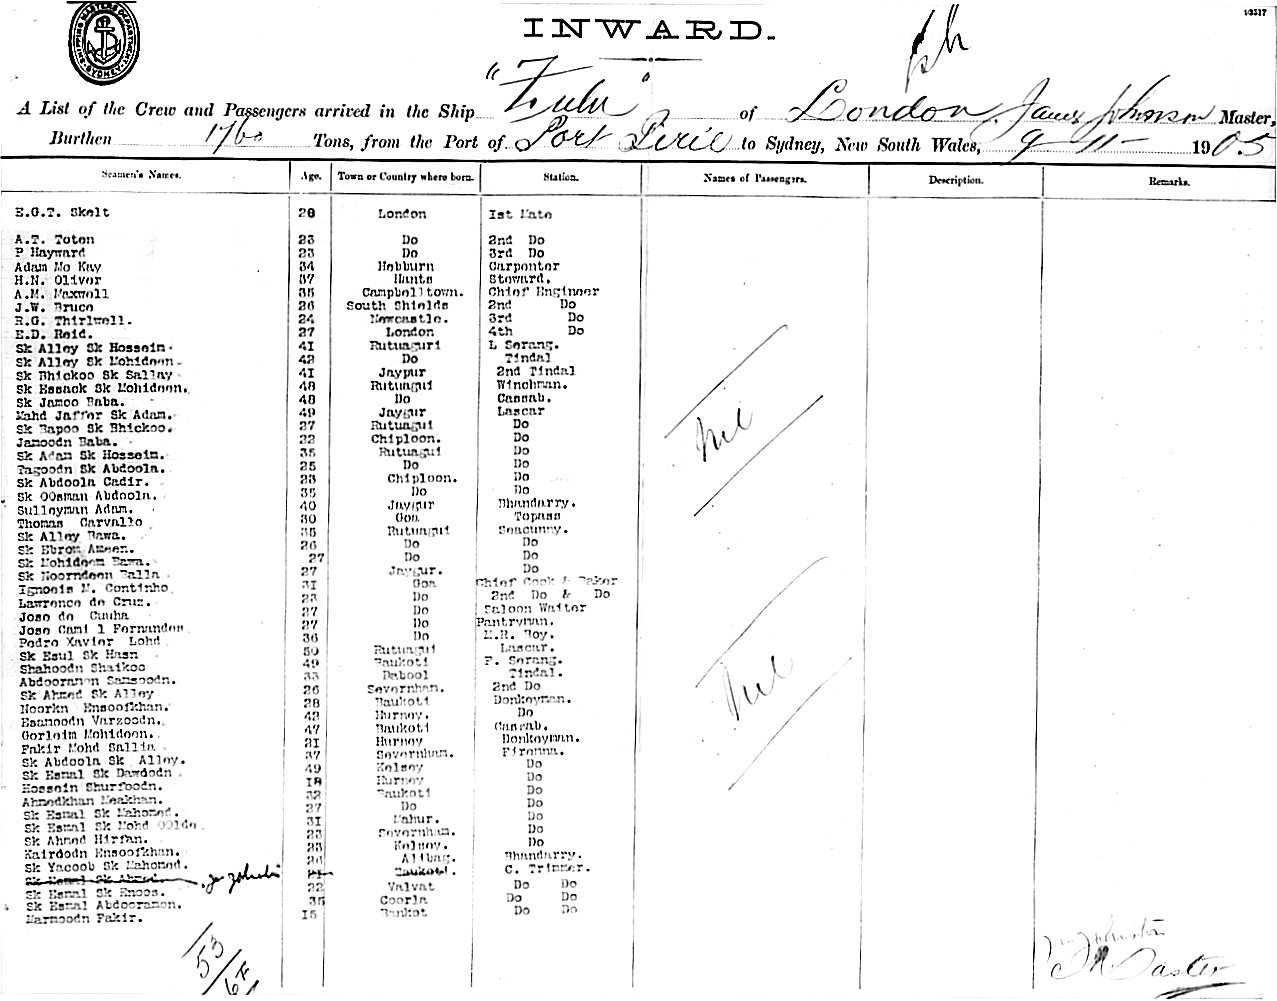 SHIPPING MASTERS DEPARTMENT
SYDNEY
INWARD.
A List of the Crew and Passengers arrived in the Ship "Zulu" of London, James Johnson Master,
Burthen 1760 Tons, from the Port of Port Pirie to Sydney, New South Wales, 9-11- 1905
Seamen's Names. Age. Town or Country where born. Station. Names of Passengers. Description. Remarks.
E.G.T. Skelt 28 London 1st Mate
A.T. Toten 23 Do 2nd Do
P Hayward 23 Do 3rd Do
Adam Mc Kay 34 Hebburn Carpenter
H.N. Oliver 37 Hants Steward.
A.M. Maxwell 35 Campbelltown. Chief Engineer
J.W. Bruce 26 South Shields 2nd Do
R.G. Thirlwell. 24 Newcastle. 3rd Do
E.D. Reid. 27 London 4th Do
Sk Alley Sk Hossein. 41 Rutuaguri L Serang.
Sk Alley Sk Mohideen. 42 Do Tindal
Sk Bhickoo Sk Sallay 41 Jaypur 2nd Tindal
Sk Essack Sk Mohideen. 48 Rutuagui Winchman.
Sk Jamoo Baba. 48 Do Cassab.
Mahd Jaffer Sk Adam. 49 Jaygur Lascar
Sk Bapoo Sk Bhickoo. 27 Rutuagui Do
Jamoodn Baba. 22 Chiploon. Do
Sk Adam Sk Hossein. 35 Rutuagui Do
Tagoodn Sk Abdoola. 25 Do Do
Sk Abdoola Cadir. 23 Chiploon. Do
Sk OOsman Abdoola. 35 Do Do
Sulleyman Adam. 40 Jaygur Bhandarry.
Thomas Carvallo 30 Goa Topass
Sk Alley Bawa. 35 Rutuagui Seacunny.
Sk Ebrom Ameen. 26 Do Do
Sk Mohideen Bawa. 27 Do Do
Sk Noorndeen Balla 27 Jaygur. Do
Ignoeis M. Continho 31 Goa Chief Cook & Baker
Lawrence de Cruz. 23 Do 2nd Do & Do
Jose de Cunha 27 Do Saloon Waiter
Jose Cami l Fernandes 27 Do Pantryman.
Pedro Xavier Lobd 36 Do M.R. Boy.
Sk Esul Sk Hasn 50 Rutuagui Lascar.
Shahoodn Shaikoo 49 Baukoti F. Serang.
Abdooramon Samsoodn. 33 Dabool Tindal.
Sk Ahmed Sk Alley 26 Severnham. 2nd Do
Noorkn Ensoofkhan. 28 Baukoti Donkeyman.
Esamoodn Varzoodn. 42 Hurney. Do
Gorleim Mohidoon. 47 Baukoti Cassab.
Fakir Mohd Sallia 21 Hurney Donkeyman.
Sk Abdoola Sk Alley. 37 Severnham. Firemna.
Sk Esmal Sk Dawdodn 49 Kelsey Do
Hossein Shurfoodn. 18 Hurney Do
Ahmedkhan Meakhan. 32 Baukoti Do
Sk Esmal Sk Mahomed. 27 Do Do
Sk Esmal Sk Mohd OOlde 31 Mahur. Do
Sk Ahmed Hirfan. 23 Severnham. Do
Kairdodn Ensoofkhan. 23 Kelsey. Do
Sk Yacoob Sk Mahomed. 26 Alibag. Bhandarry.
Sk Esmal Sk Ahmed 21 Baukoti. C. Trimmer.
Sk Esmal Sk Enoos. 22 Valvat Do Do
Sk Esmal Abdooramon. 35 Coorla Do Do
Marmoodn Fakir. 15 Bankot Do Do
Nil
Nil
53
Jas Johnston
Master